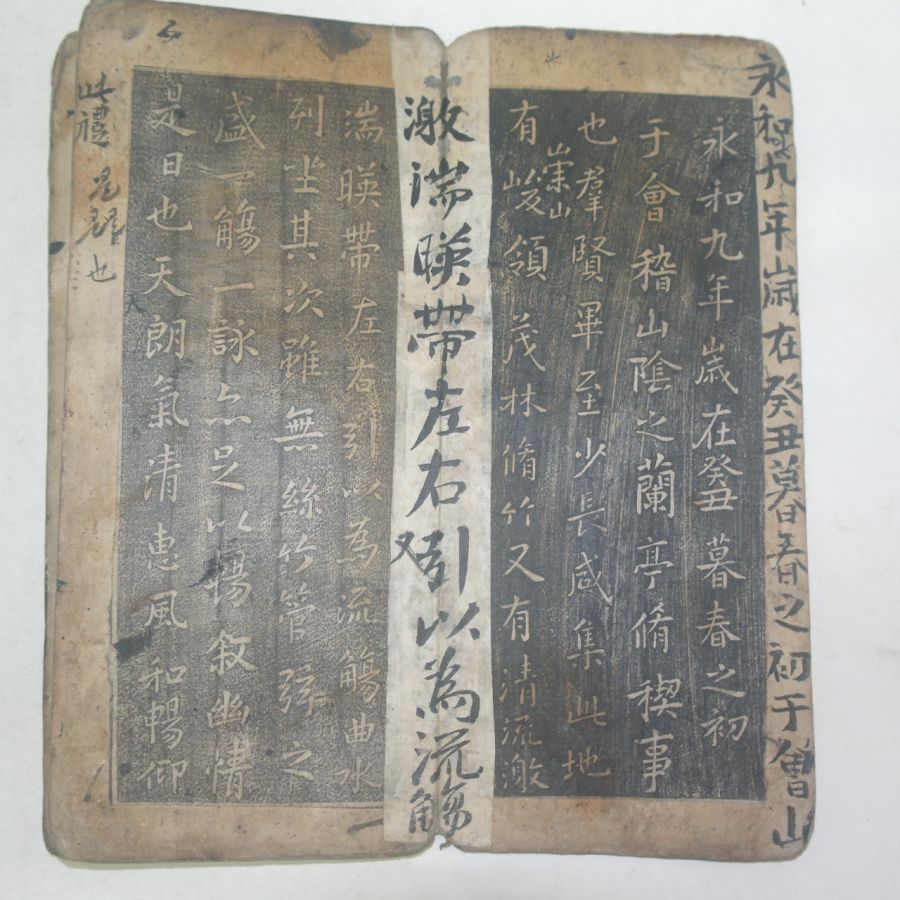 永和九年歲在癸丑暮春之初于會山
永和九年歲在癸丑暮春之初
于會稽山陰之蘭亭脩稧事
也羣賢畢至少長咸集此地
有崇山峻領茂林脩竹又有清流激
激湍暎帶左右引以為流觴
又
湍暎帶左右引以為流觴曲水
列坐其次雖無絲竹管弦之
盛一觴一詠亦足以暢敘幽情
是日也天朗氣清惠風和暢仰
此禮
也